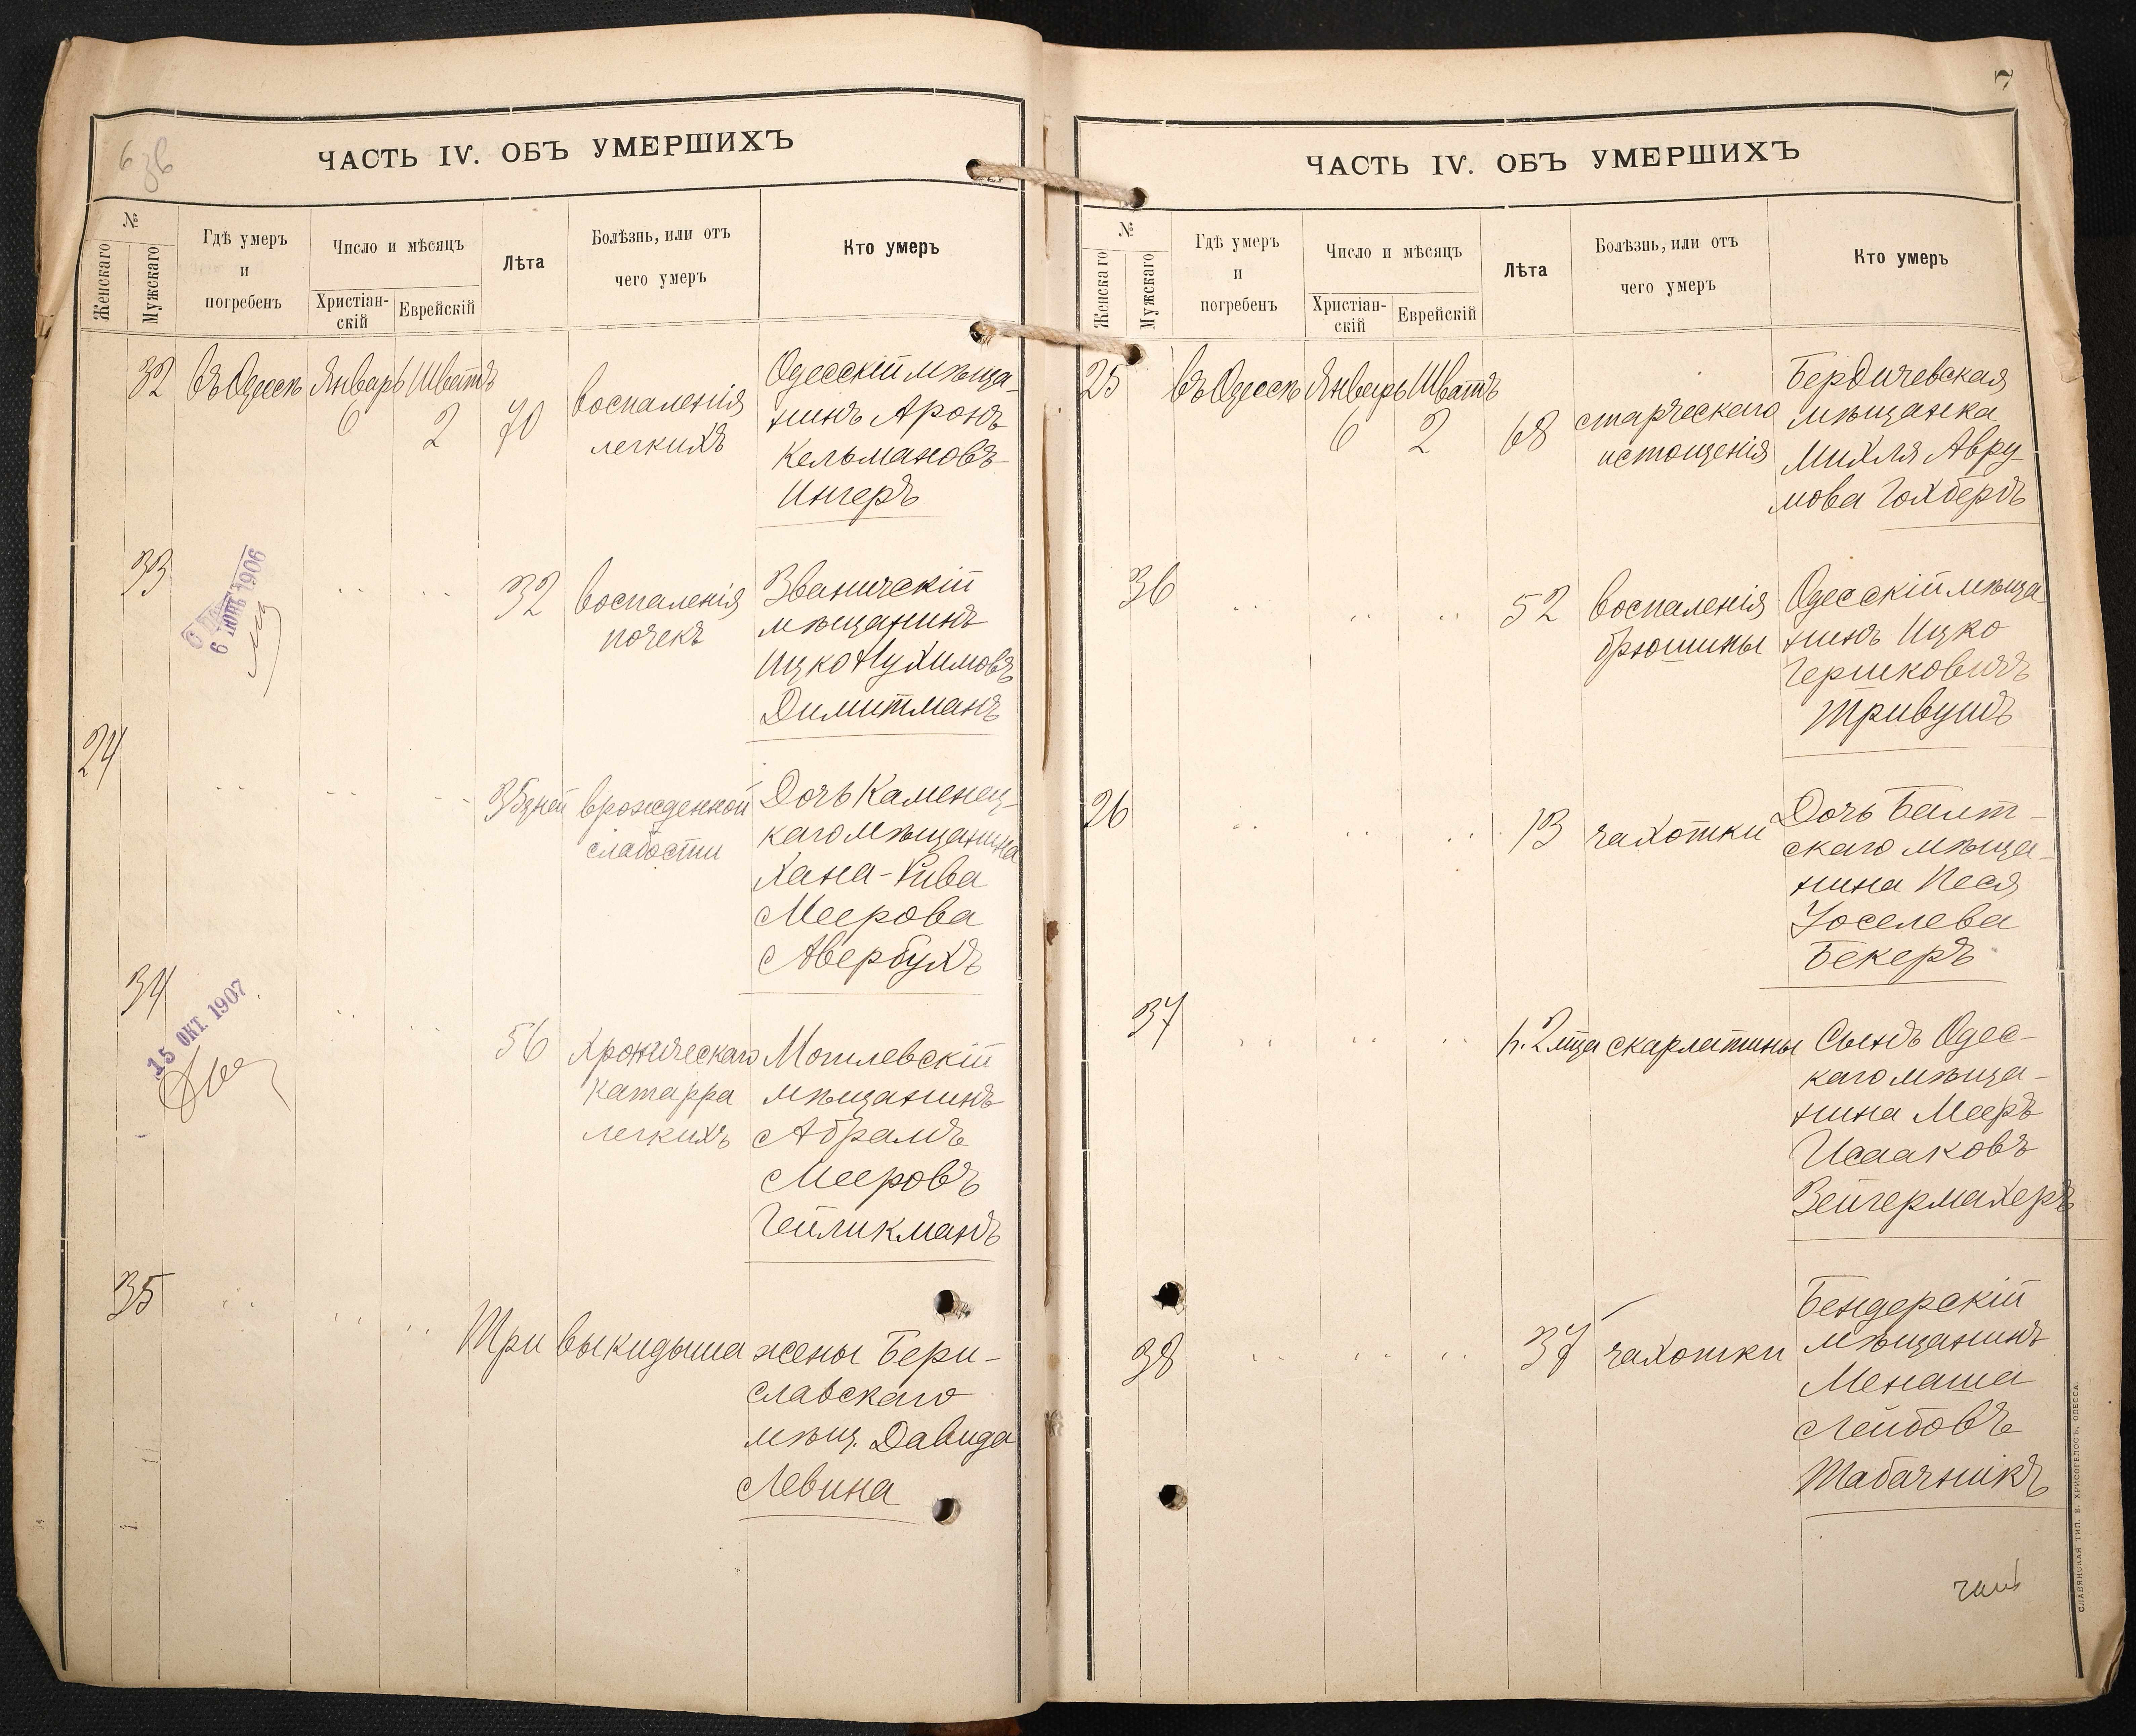 6 зв
ЧАСТЬ IV. ОБЪ УМЕРШИХЪ
№
Женскаго
Мужскаго
Гдѣ умеръ
и
погребенъ
Число и мѣсяцъ
Христіан-
скій
Еврейскій
Лѣта
Болѣзнь, или отъ
чего умеръ
Кто умеръ
32
въ Одессѣ
Январь
6
Шватъ
2
70
воспаленія
легкихъ
Одесскій мѣща-
нинъ Аронъ
Кельмановъ
Ингеръ
33
6 ІЮН 1906
32
воспаленія
почекъ
Званичскій
мѣщанинъ
Ицко Нухимовъ
Дилитманъ
24
35 дней
врожденной
слабости
Дочь Каменец-
каго мѣщанина
Хана-Рива
Меерова
Авербухъ
34
15 ОКТ. 1907
56
хроническаго
катарра
легкихъ
Могилевскій
мѣщанинъ
Абрамъ
Мееровъ
Гейликманъ
35
Три выкидыша
жены Бери-
славскаго
мѣщ. Давида
Левина
7
ЧАСТЬ IV. ОБЪ УМЕРШИХЪ
№
Женскаго
Мужскаго
Гдѣ умеръ
и
погребенъ
Число и мѣсяцъ
Христіан-
скій
Еврейскій
Лѣта
Болѣзнь, или отъ
чего умеръ
Кто умеръ
25
въ Одессѣ
Январь
6
Шватъ
2
68
старческаго
истощенія
Бердичевская
мѣщанка
Михля Авру-
мова Гохбергъ
36
52
воспаленія
брюшины
Одесскій мѣща
нинъ Ицко
Гершковичъ
Тривушъ
26
13
чахотки
Дочь Балт-
скаго мѣща-
нина Песя
Іоселева
Бекеръ
37
2 мца
скарлатины
Сынъ Одес-
каго мѣща-
нина Мееръ
Исааковъ
Зейгермахеръ
38
37
чахотки
Бендерскій
мѣщанинъ
Менаша
Лейбовъ
Табачникъ
СЛАВЯНСКАЯ ТИП. Е. ХРИСОГЕЛОСЪ, ОДЕССА.